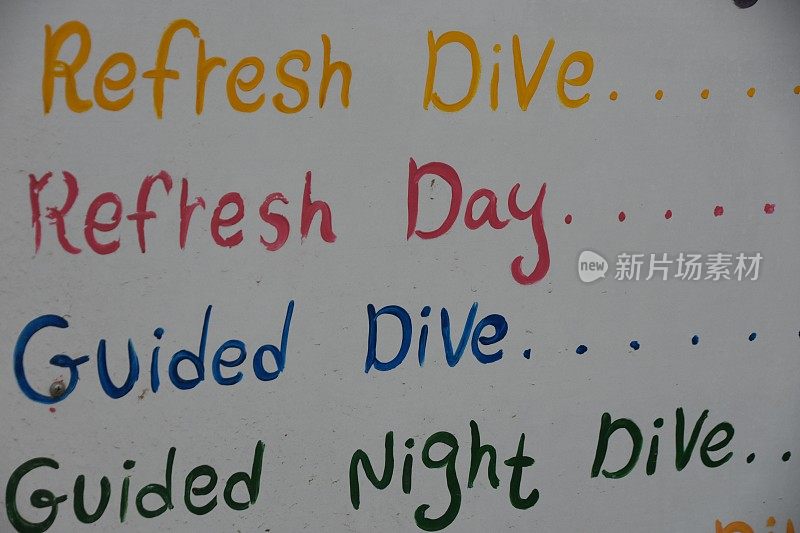 Refresh Dive.....
Refresh Day.....
new 新片场素材
Guided Dive......
Guided Night Dive..